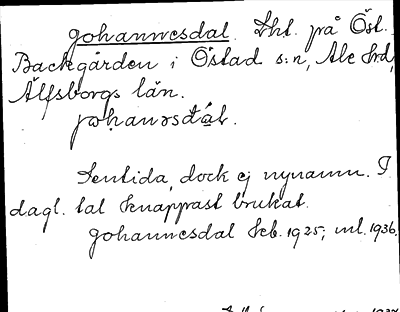 Johannesdal. Lht. på Öst.
Backgården i Östad s:n, Ale hrd,
Älfsborgs län.
johanəsdál.
Sentida, dock ej nynamn. I
dagl. tal knappast brukat.
Johannesdal Jeb. 1925; ml. 1936.